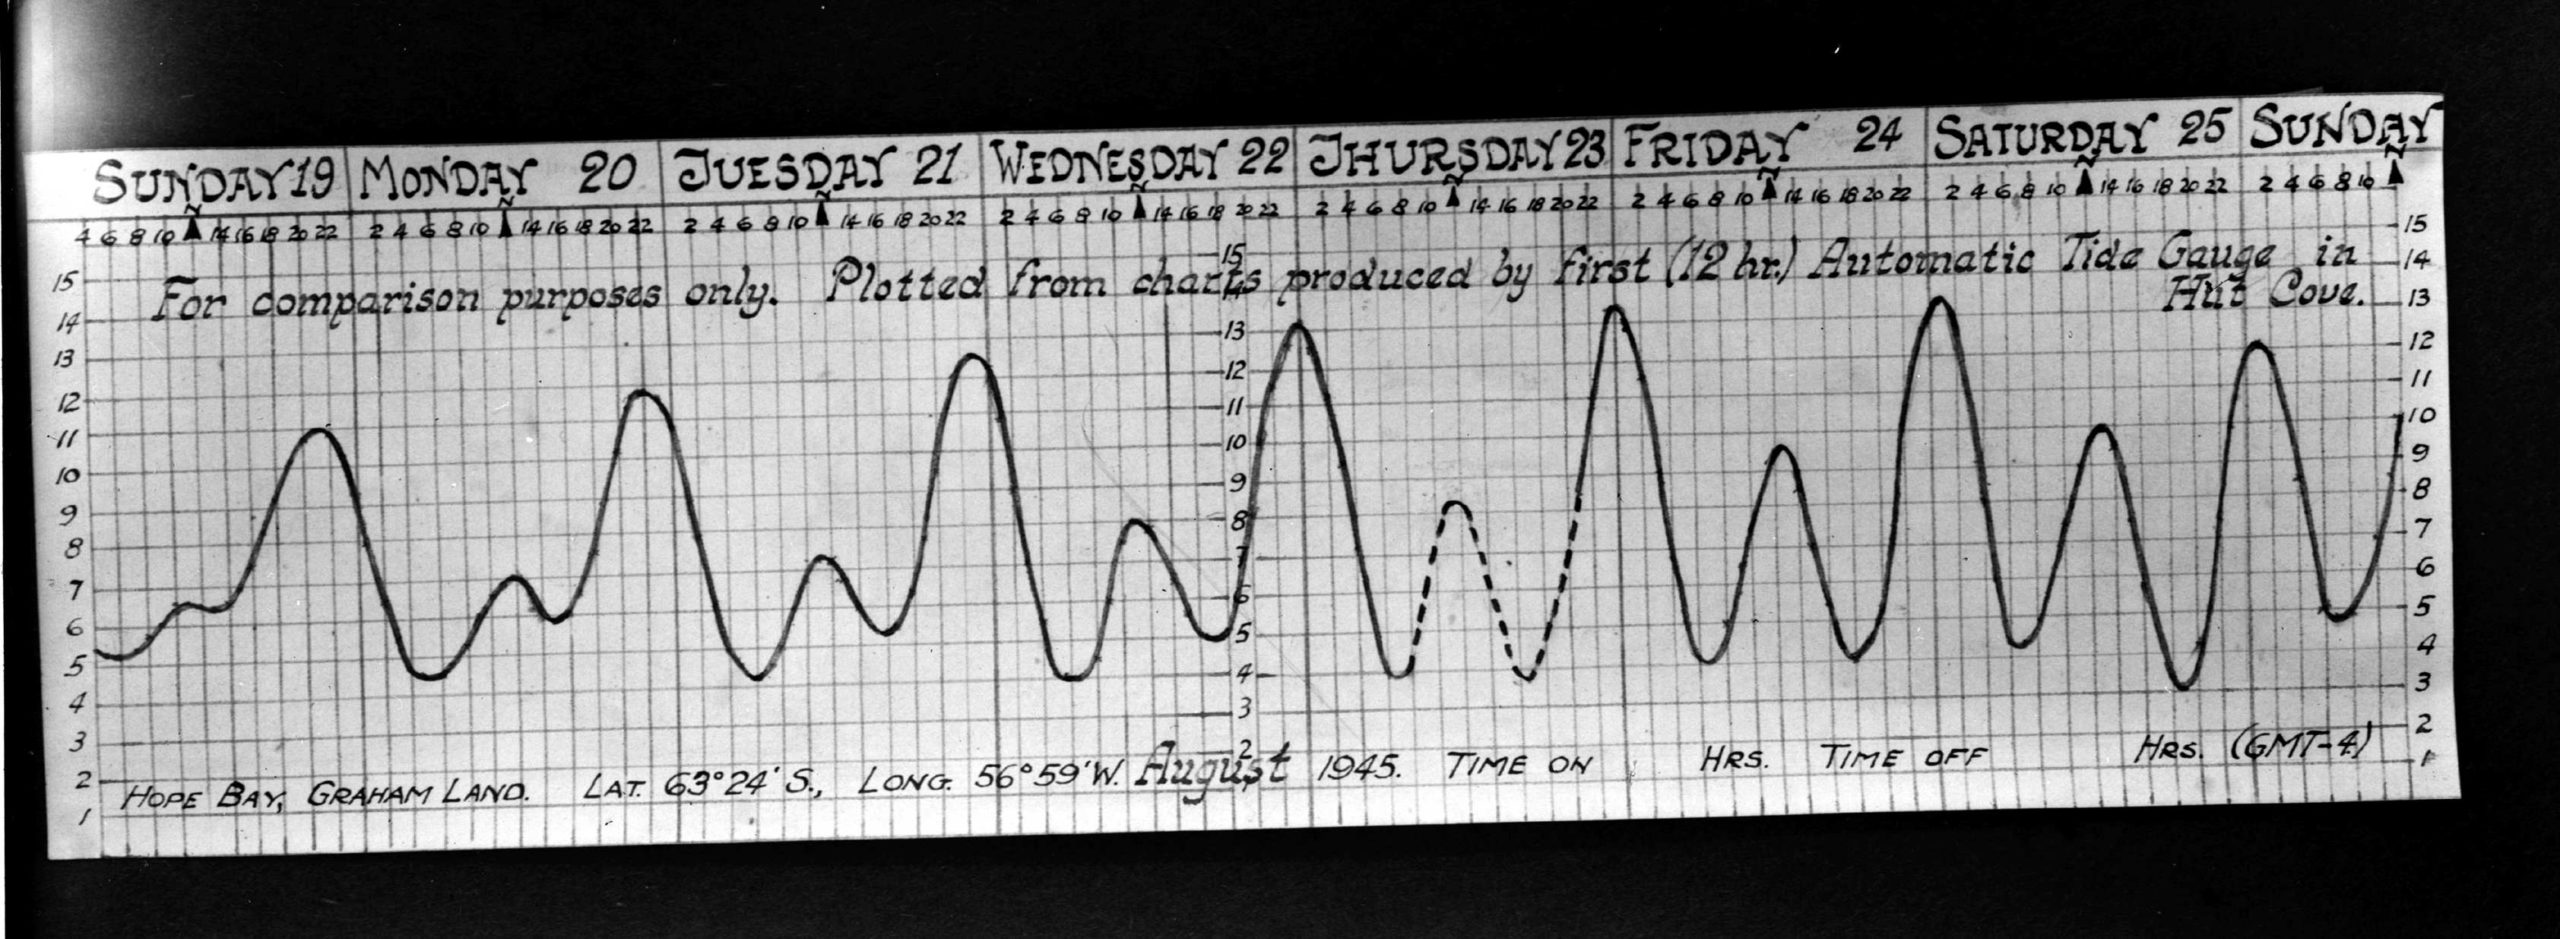 SUNDAY 19 MONDAY 20 TUESDAY 21 WEDNESDAY 22 THURSDAY 23 FRIDAY 24 SATURDAY 25 SUNDAY
4 6 8 10 N 14 16 18 20 22 2 4 6 8 10 N 14 16 18 20 22 2 4 6 8 10 N 14 16 18 20 22 2 4 6 8 10 N 14 16 18 20 22 2 4 6 8 10 N 14 16 18 20 22 2 4 6 8 10 N 14 16 18 20 22 2 4 6 8 10 N 14 16 18 20 22 2 4 6 8 10 N
For comparison purposes only. Plotted from charts produced by first (12 hr.) Automatic Tide Gauge in
Hut Cove.
15
14
13
12
11
10
9
8
7
6
5
4
3
2
1
15
14
13
12
11
10
9
8
7
6
5
4
3
2
15
14
13
12
11
10
9
8
7
6
5
4
3
2
1
HOPE BAY, GRAHAM LAND. LAT. 63°24' S., LONG. 56°59' W. August 1945. TIME ON HRS. TIME OFF HRS. (GMT-4)